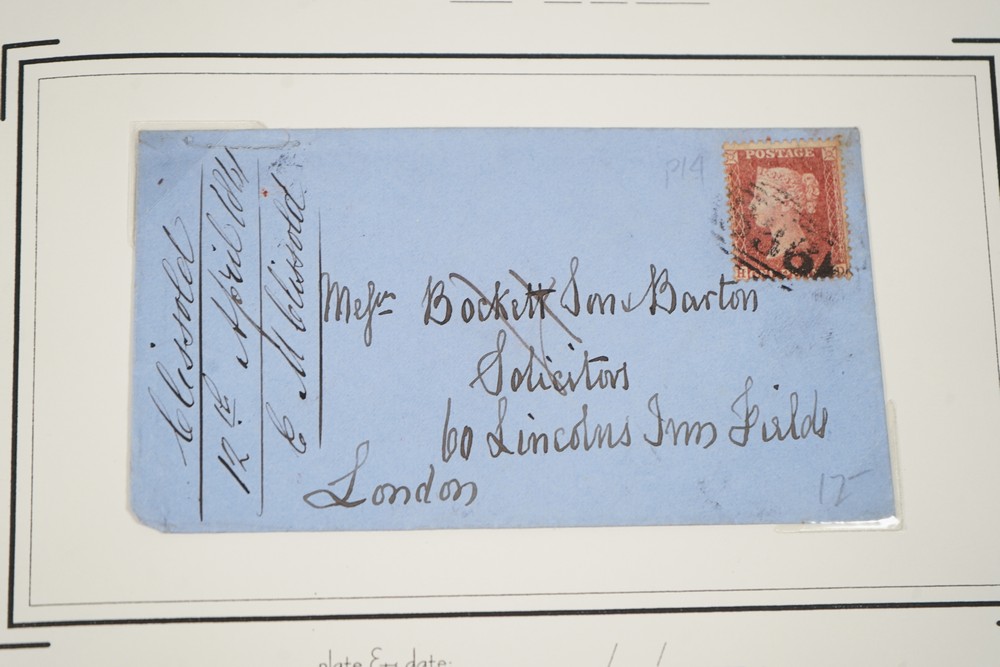 Clissold
12th April 1861
E M Clissold
P14
POSTAGE
Messrs Bockett Son & Barton
Solicitors
60 Lincolns Inn Fields
London
12-
plate & date: